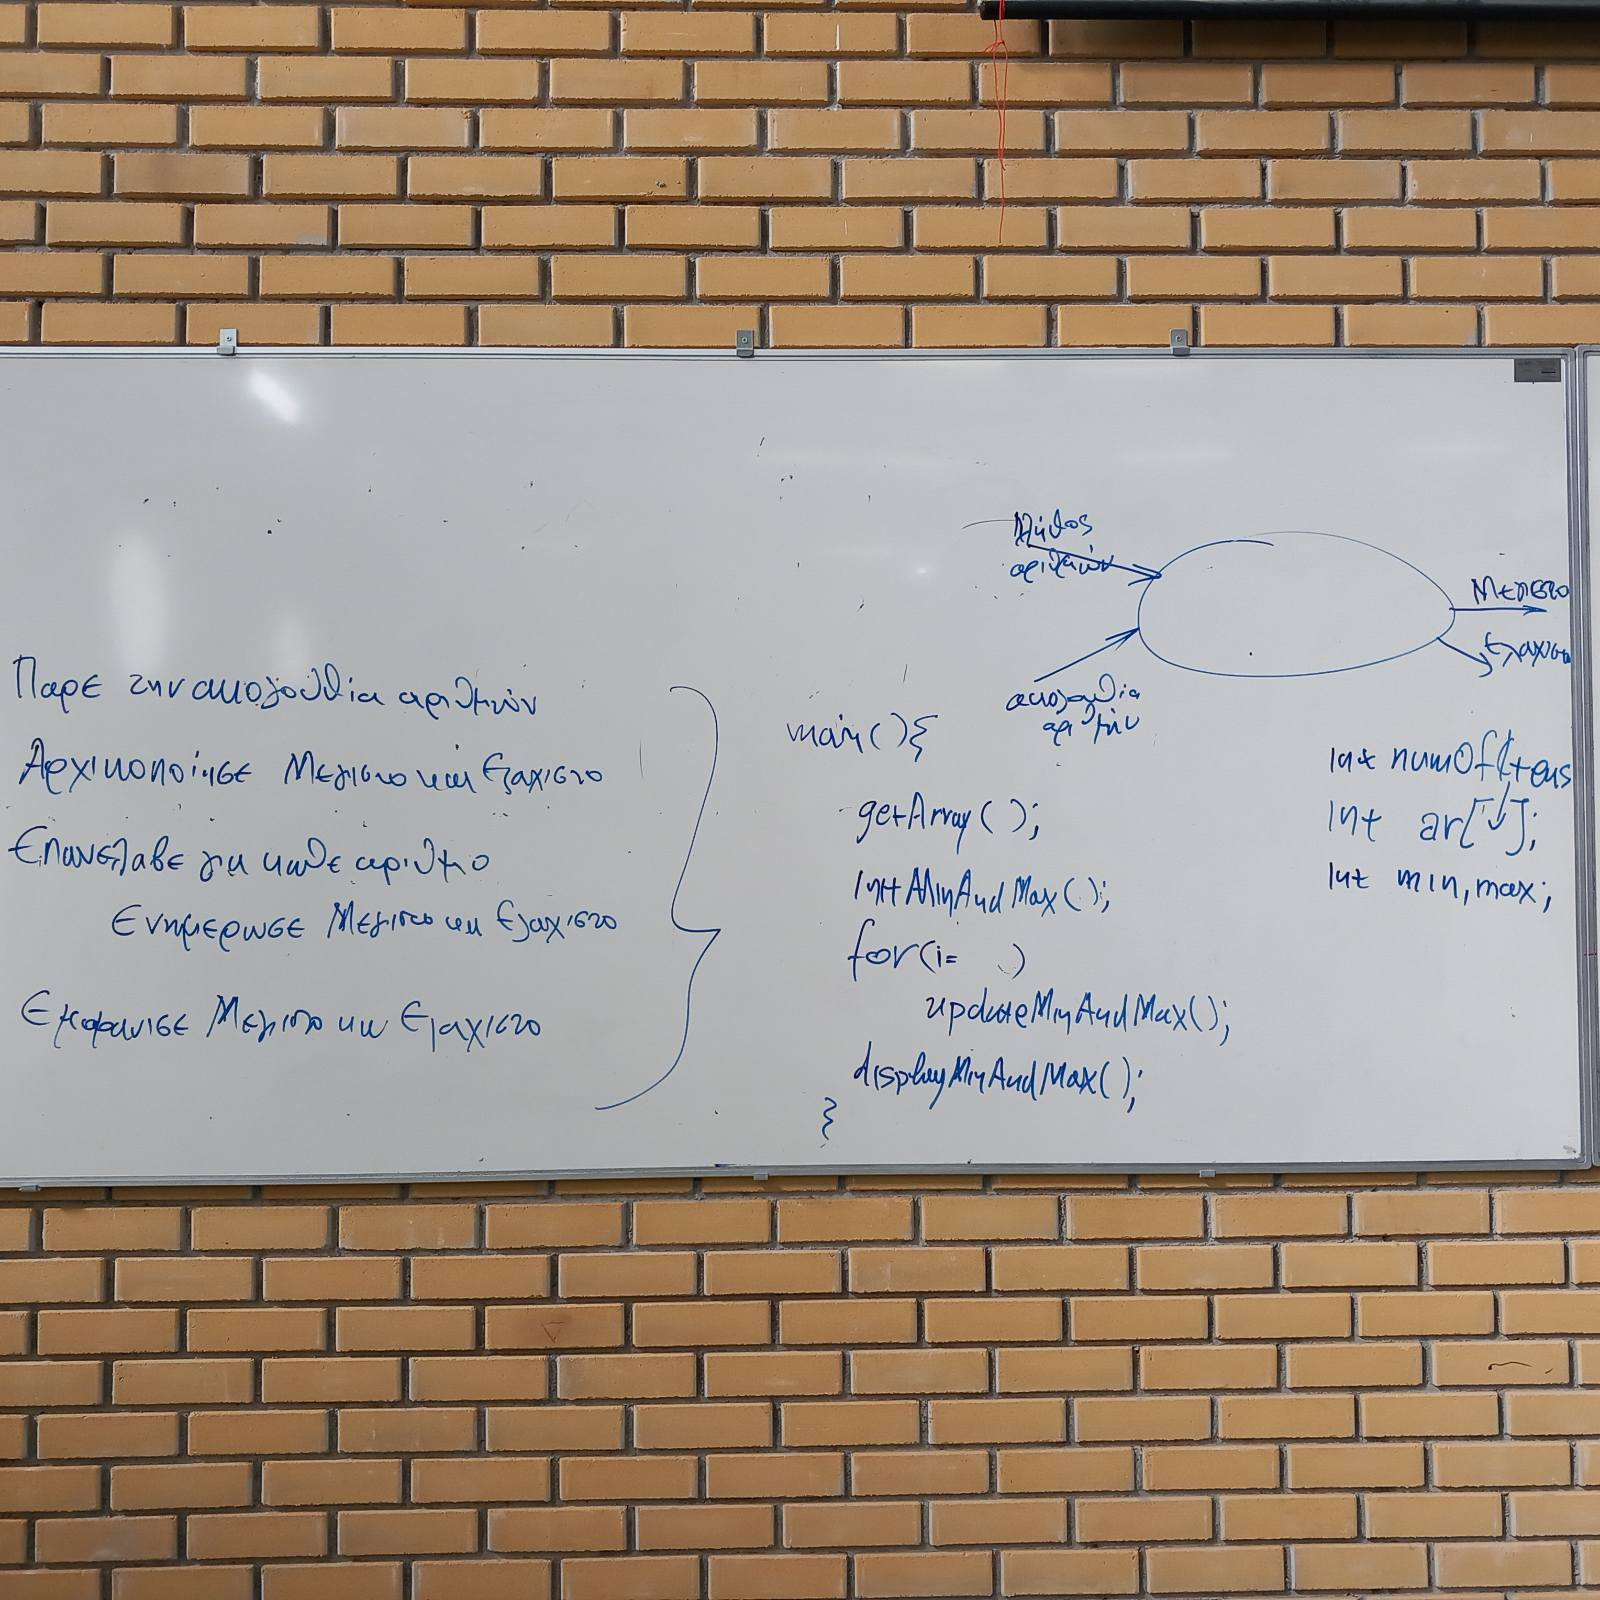 Παρε την ακολουθία αριθμών
Αρχικοποίησε Μεγιστο και Ελαχιστο
Επανελαβε για καθε αριθμο
Ενημερωσε Μεγιστο και Ελαχιστο
Εμφανισε Μεγιστο και Ελαχιστο
πλήθος
αριθμών
ακολουθία
αριθμών
Μεγιστο
Ελαχιστο
main(){
getArray( );
InitMinAndMax( );
for(i= )
updateMinAndMax();
displayMinAndMax( );
}
int numOfItems
int ar[↓];
int min,max;